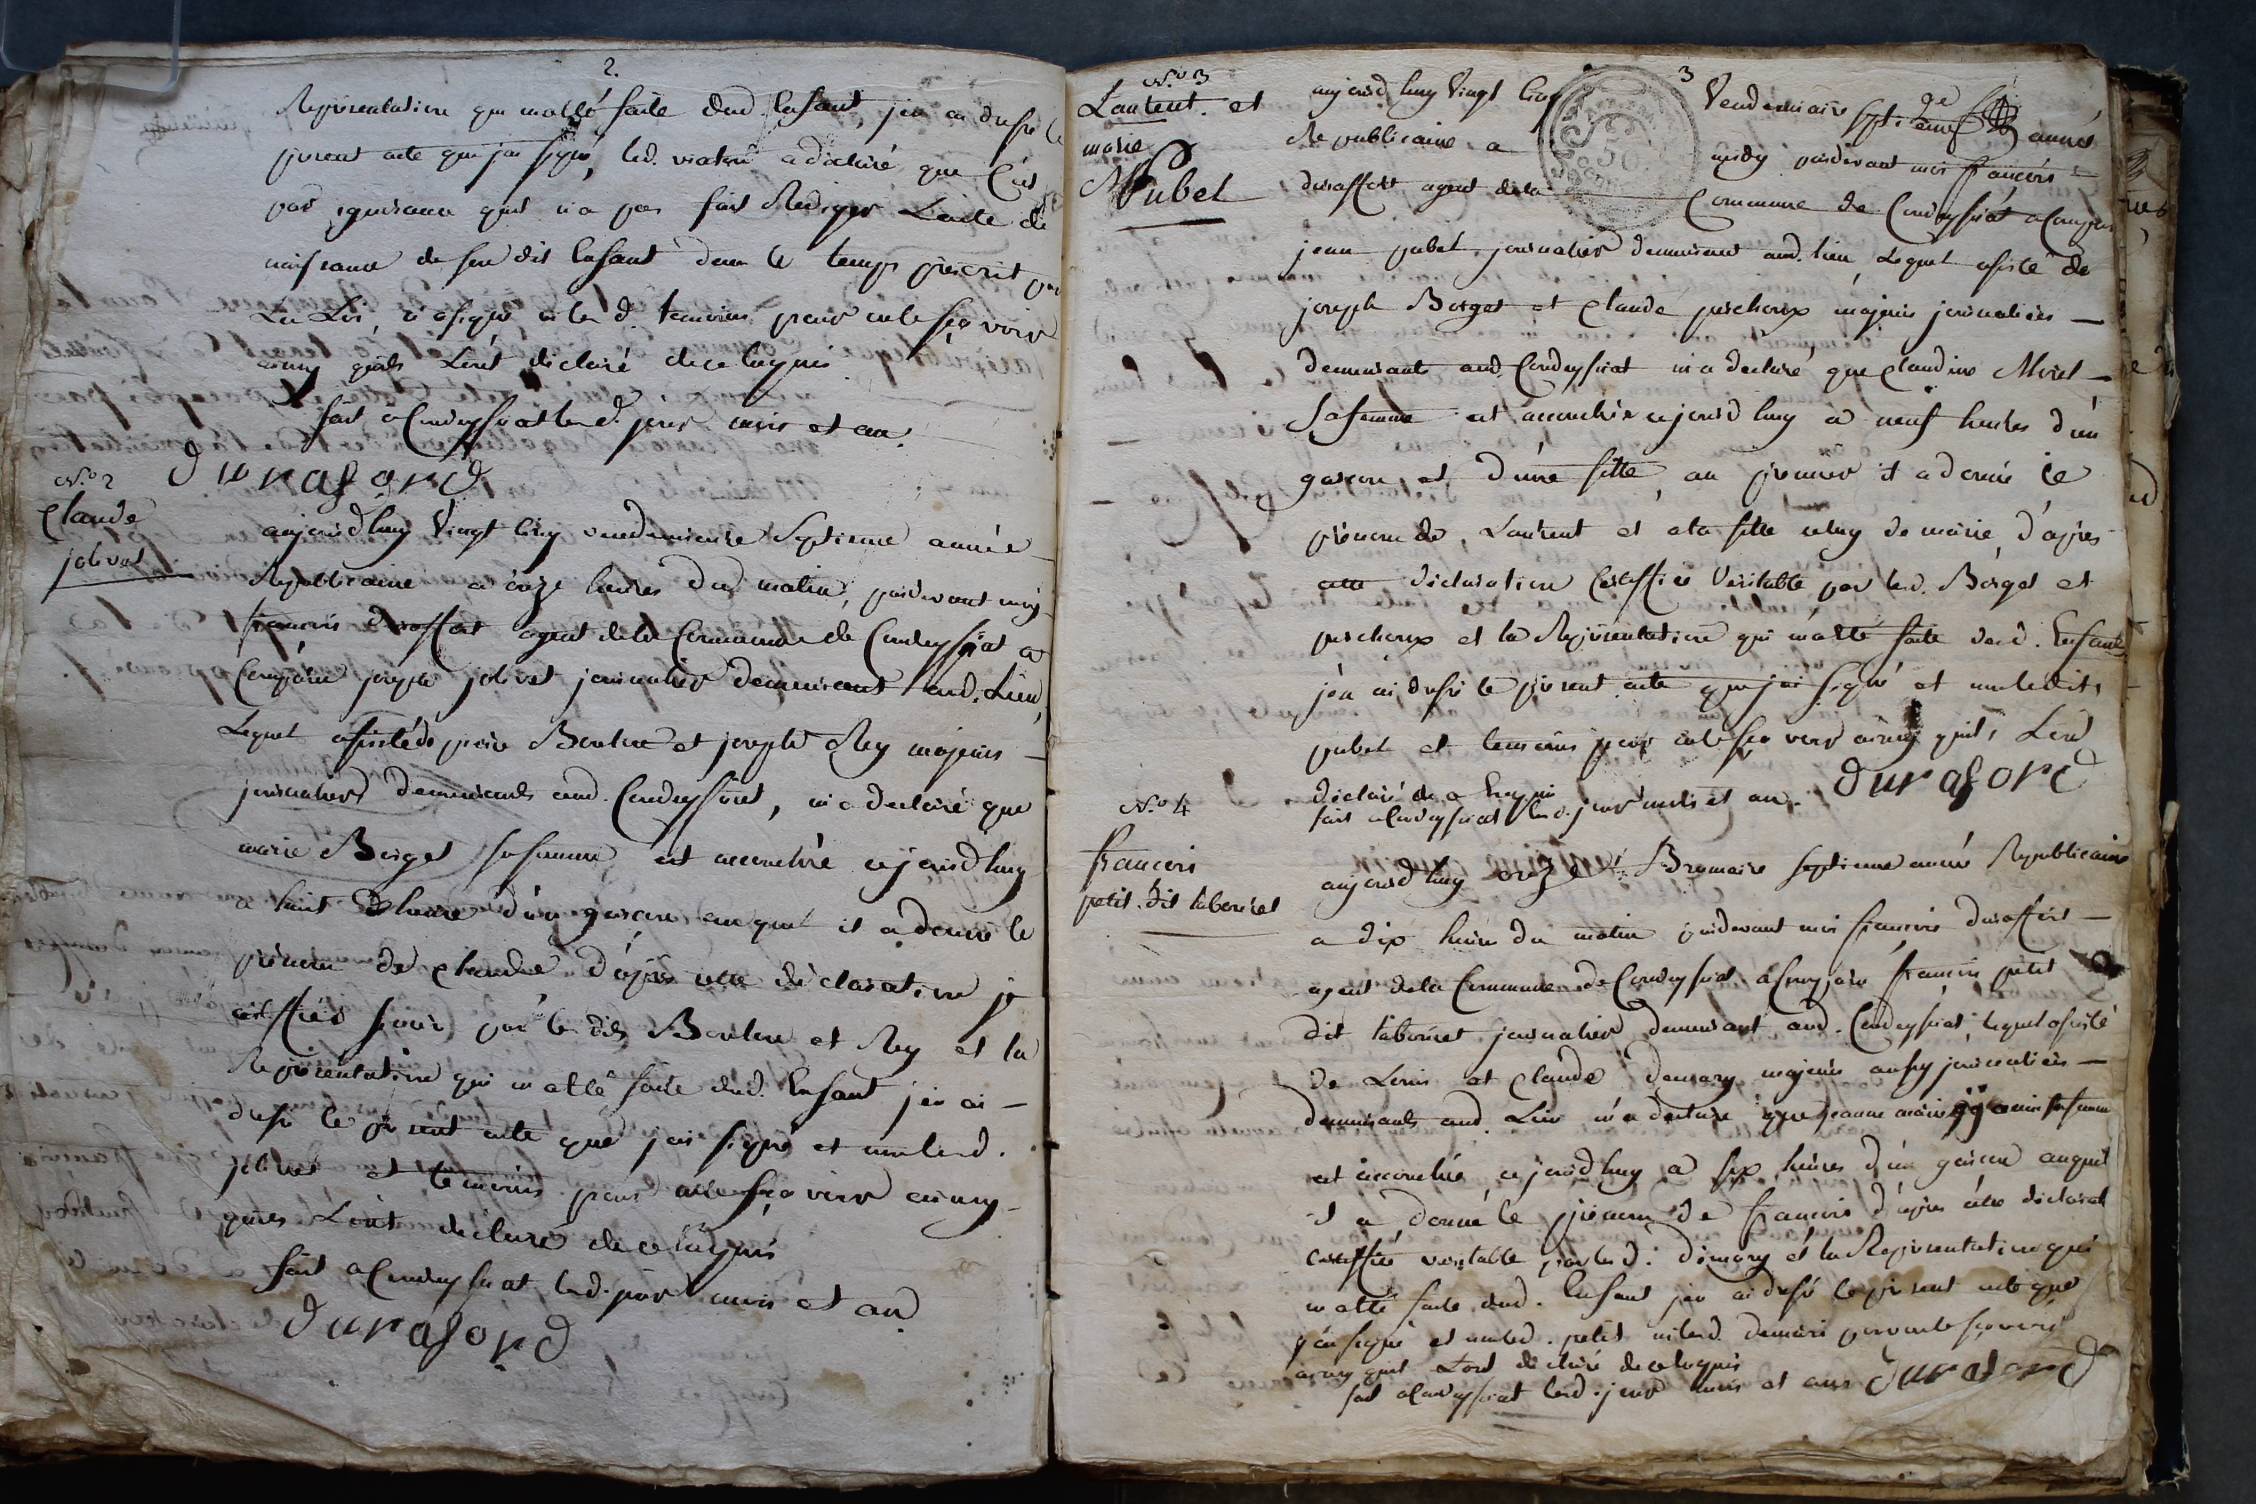 2.
Representation qui matté faite dud. Enfant, jen ai dresse le
present acte que jai signé, led. a declaré que C'est
par ignorance quil n'a pas fait Rediger L'acte de
naissance de son dit Enfant dans le temps prescrit par
La Loi, n'a signé ni led. temoins pour ne le sçavoir
ainsy quils L'ont déclaré de ce Enquis
fait a Condeyssiat led. jour mois et an.
duraford
N.o 2
Claude
jolivet
aujourd'huy Vingt Cinq vendemiaire Septieme année
Republicaine a onze heures du matin, pardevant moy
francois duraffort agent dela Commune de Condeyssiat a
Comparu joseph jolivet journalier demeurant aud. Lieu,
Lequel assisté de Bouton et joseph Rey majeurs
journaliers demeurants aud. Condeyssiat, m'a declaré que
marie Borget sa femme est accouchée cejourd'huy
a huit d'heure d'un garcon auquel il a donné le
prénom de Claude d'après cette déclaration
certiffiée par les dits Bouton et Rey et la
Représentation qui matté faite dud. Enfant jen ai
dressé le present acte que jai signé et non led.
jolivet et temoins pour ne le sçavoir ainsy
quils L'ont déclaré de ce Enquis
fait a Condeyssiat led. jour mois et an
duraford
3
N.o 3
Laurent et
marie
Pubet
aujourd'huy Vingt Cinq Vendemiaire septieme année
Republicaine a midy pardevant moi francois
duraffort agent dela Commune de Condeyssiat a Comparu
jean pubet journalier demeurant aud. lieu, Lequel assisté de
joseph Borget et Claude perchoux majeurs journaliers
demeurants aud. Condeyssiat m'a declaré que Claudine Morel
sa femme est accouchée cejourd'huy a neuf heures d'un
garcon et d'une fille, au premier il a donné le
prénom de Laurent et a la fille celuy de marie, d'apres
cette déclaration Certiffiée Véritable par led. Borget et
perchoux et la Représentation qui matté faite dud. Enfants
jen ai dressé le present acte que jai signé et non ledit
pubet et temoins pour ne le sçavoir ainsy quils L'ont
déclaré de ce Enquis
fait a Condeyssiat led. jour mois et an. duraford
N.o 4
francois
petit dit labornet
aujourd'huy onze Brumaire septieme année Republicaine
a dix heures du matin pardevant moi francois duraffort
agent dela Commune de Condeyssiat a Comparu francois petit
dit labornet journalier demeurant aud. Condeyssiat, lequel assisté
de Louis et Claude majeurs aussy journaliers
demeurants aud. Lieu m'a declaré que jeanne marie sa femme
est accouchée cejourd'huy a six heures d'un garcon auquel
il a donné le prénom de francois d'après cette déclarat
Certiffiée veritable par led. et la Representation qui
matté faite dud. Enfant jen ai dressé le present acte que
j'ai signé et non led. petit ni led. pour ne le sçavoir
ainsy quils L'ont déclaré de ce Enquis
fait a Condeyssiat led. jour mois et an duraford